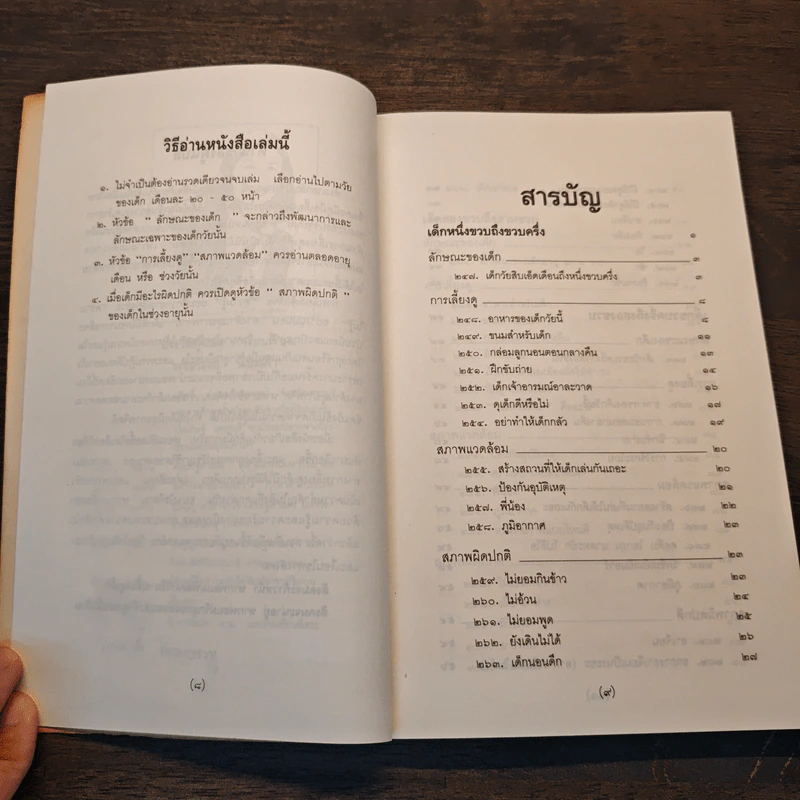 วิธีอ่านหนังสือเล่มนี้
๑. ไม่จำเป็นต้องอ่านรวดเดียวจนจบเล่ม เลือกอ่านไปตามวัย
ของเด็ก เดือนละ ๒๐ - ๕๐ หน้า
๒. หัวข้อ " ลักษณะของเด็ก " จะกล่าวถึงพัฒนาการและ
ลักษณะเฉพาะของเด็กวัยนั้น
๓. หัวข้อ "การเลี้ยงดู" "สภาพแวดล้อม" ควรอ่านตลอดอายุ
เดือน หรือ ช่วงวัยนั้น
๔. เมื่อเด็กมีอะไรผิดปกติ ควรเปิดดูหัวข้อ " สภาพผิดปกติ "
ของเด็กในช่วงอายุนั้น
(๘)
สารบัญ
เด็กหนึ่งขวบถึงขวบครึ่ง ๑
ลักษณะของเด็ก ๓
๒๔๗. เด็กวัยสิบเอ็ดเดือนถึงหนึ่งขวบครึ่ง ๓
การเลี้ยงดู ๘
๒๔๘. อาหารของเด็กวัยนี้ ๘
๒๔๙. ขนมสำหรับเด็ก ๑๑
๒๕๐. กล่อมลูกนอนตอนกลางคืน ๑๓
๒๕๑. ฝึกขับถ่าย ๑๔
๒๕๒. เด็กเจ้าอารมณ์อาละวาด ๑๖
๒๕๓. ดุเด็กดีหรือไม่ ๑๗
๒๕๔. อย่าทำให้เด็กกลัว ๑๙
สภาพแวดล้อม ๒๐
๒๕๕. สร้างสถานที่ให้เด็กเล่นกันเถอะ ๒๐
๒๕๖. ป้องกันอุบัติเหตุ ๒๑
๒๕๗. พี่น้อง ๒๒
๒๕๘. ภูมิอากาศ ๒๓
สภาพผิดปกติ ๒๓
๒๕๙. ไม่ยอมกินข้าว ๒๓
๒๖๐. ไม่อ้วน ๒๔
๒๖๑. ไม่ยอมพูด ๒๕
๒๖๒. ยังเดินไม่ได้ ๒๖
๒๖๓. เด็กนอนดึก ๒๗
(๙)